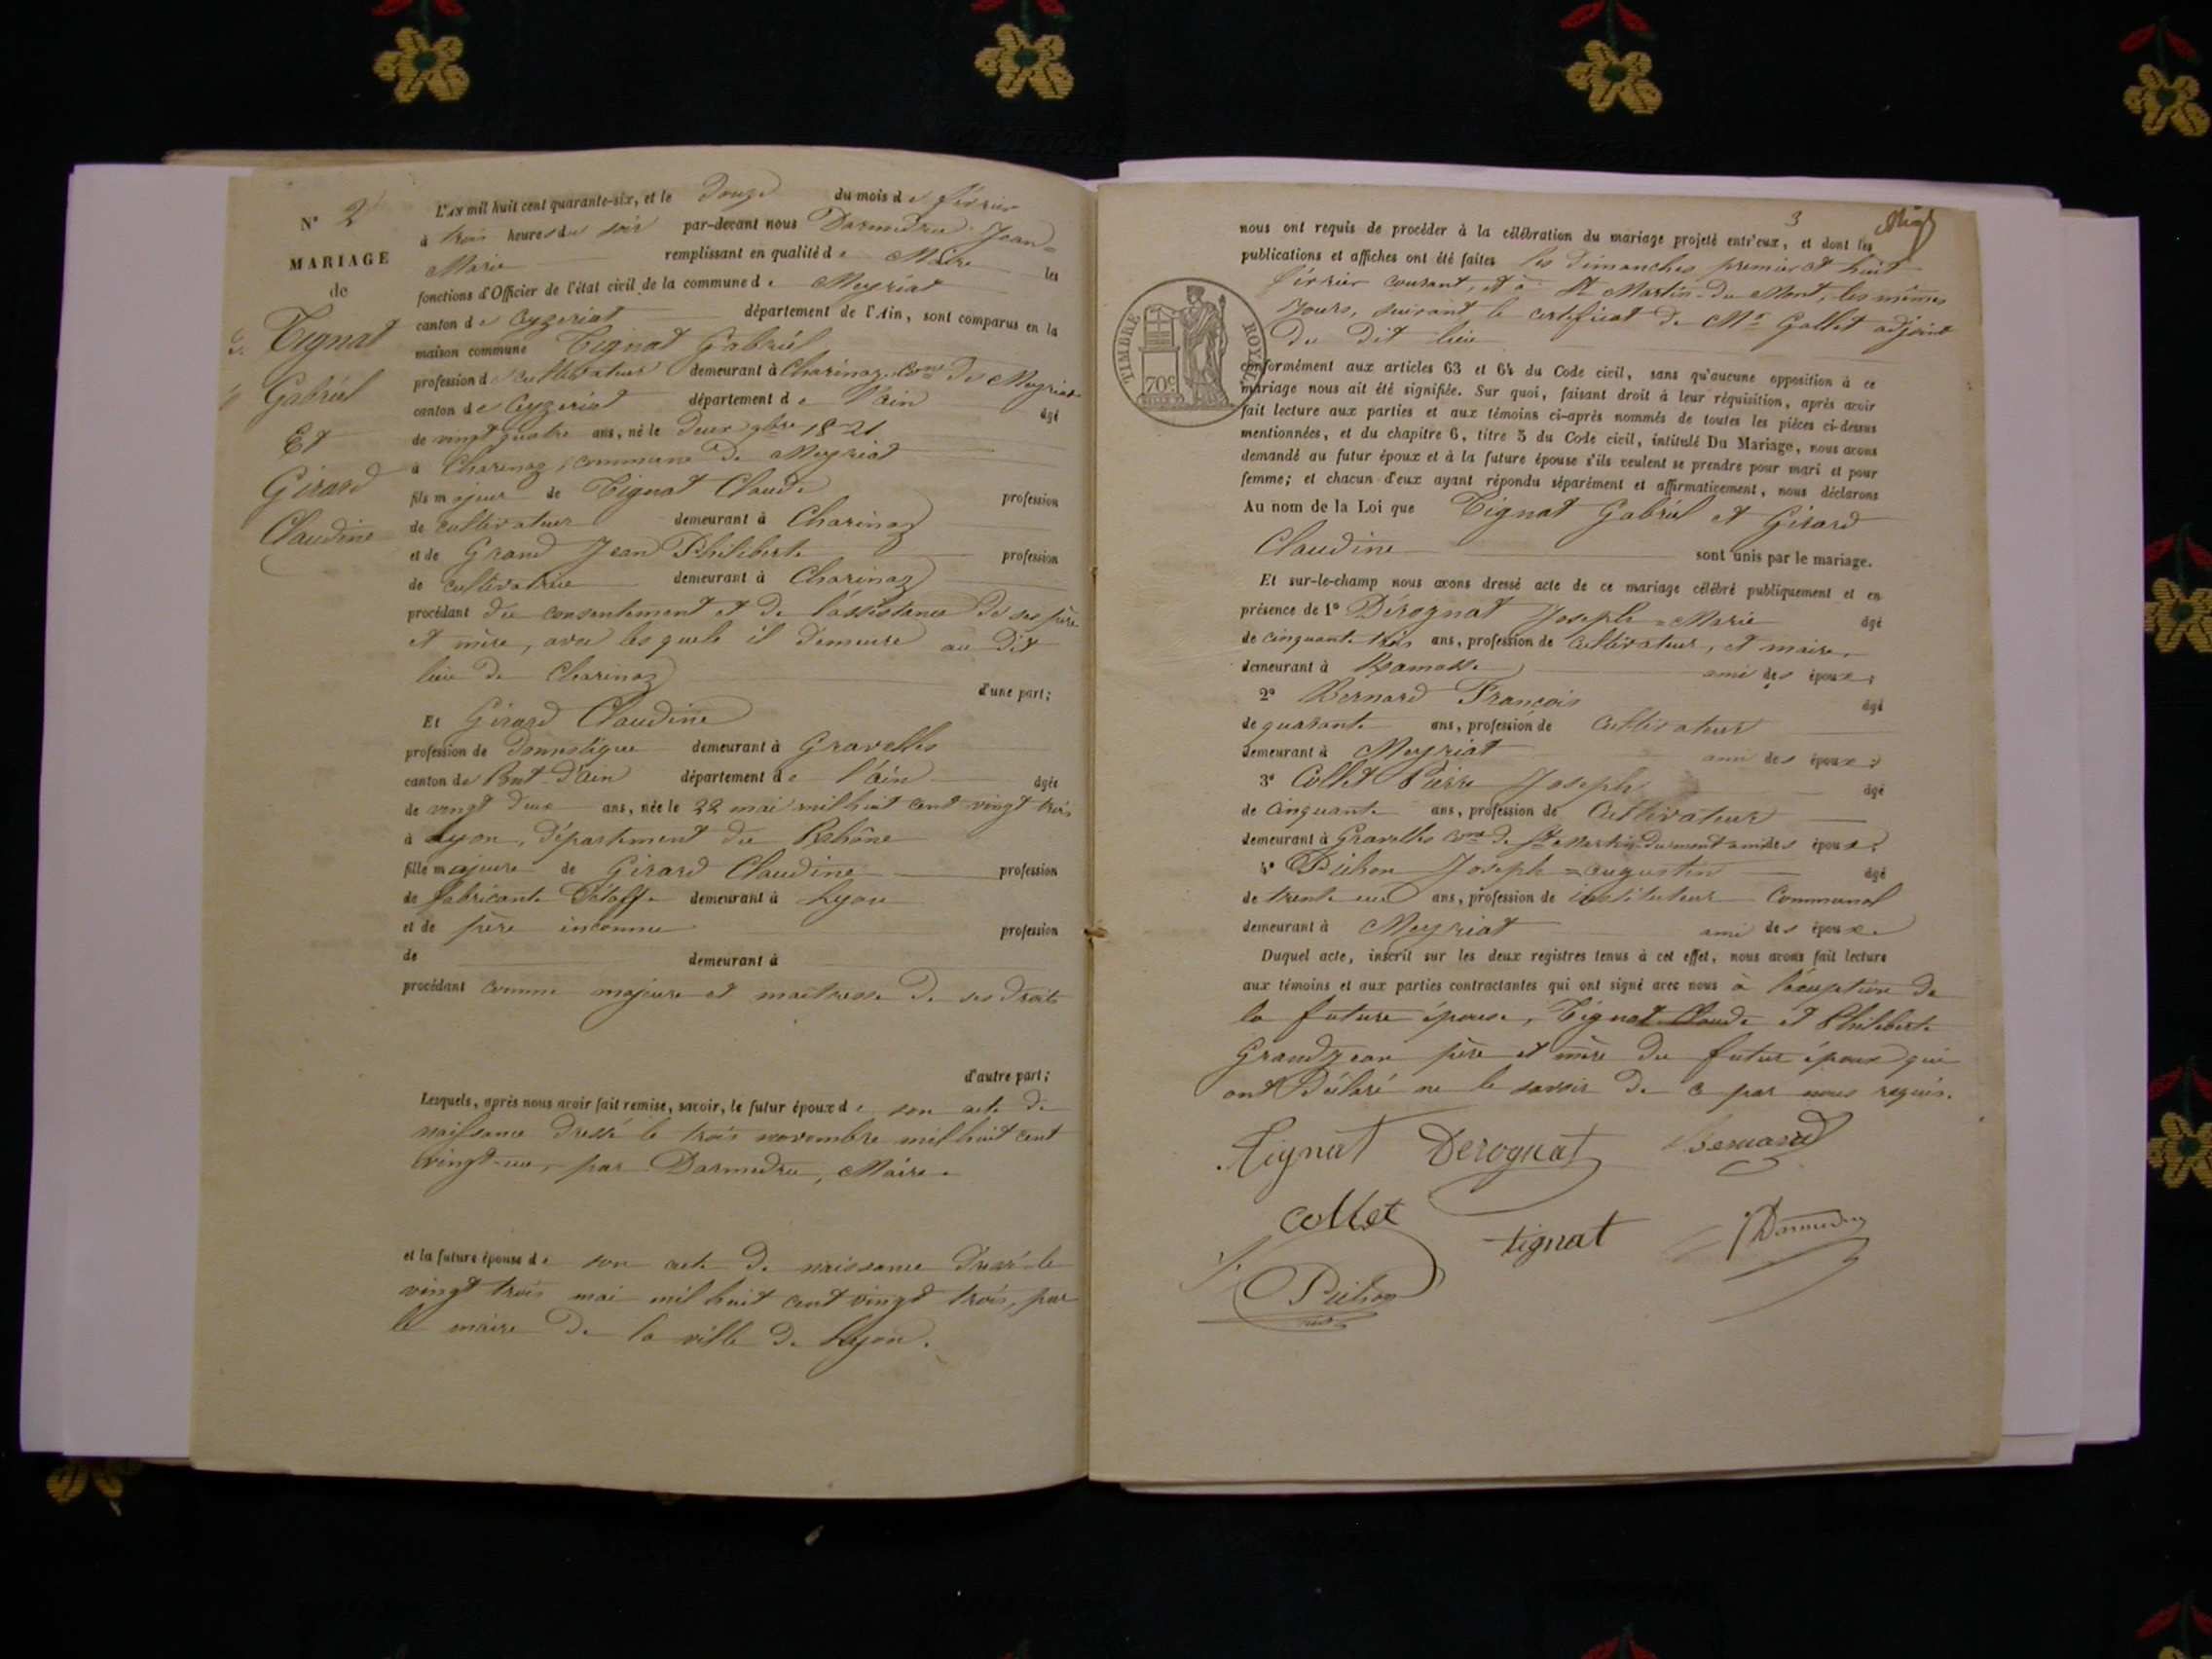 N° 2
MARIAGE
de
Tignat
Gabriel
Et
Girard
Claudine
L'AN mil huit cent quarante-six, et le Douze du mois de février
à trois heures du soir par-devant nous Darmedru Jean=
Marie remplissant en qualité de Maire les
fonctions d'Officier de l'état civil de la commune de Meyriat
canton de Ceyzeriat département de l'Ain, sont comparus en la
maison commune Tignat Gabriel
profession de cultivateur demeurant à Charinaz, Cne de Meyriat
canton de Ceyzeriat département de l'ain âgé
de vingt quatre ans, né le Deux 9bre 1821
à Charinaz, commune de Meyriat
fils majeur de Tignat Claude profession
de cultivateur demeurant à Charinaz
et de Grand Jean Philiberte profession
de cultivatrice demeurant à Charinaz
procédant du consentement et de l'assistance de ses père
et mère, avec lesquels il demeure au dit
lieu de Charinaz d'une part;
Et Girard Claudine
profession de Domestique demeurant à Gravelles
canton de Pont-d'ain département de l'ain âgée
de vingt deux ans, née le 22 mai mil huit cent vingt trois
à Lyon, département du Rhône
fille majeure de Girard Claudine profession
de fabricante d'étoffe demeurant à Lyon
et de père inconnu profession
de demeurant à
procédant comme majeure et maîtresse de ses droits
d'autre part;
Lesquels, après nous avoir fait remise, savoir, le futur époux de son acte de
naissance dressé le trois novembre mil huit cent
vingt-un, par Darmedru, Maire.
et la future épouse de son acte de naissance dressé le
vingt trois mai mil huit cent vingt trois, par
le maire de la ville de Lyon.
3
nous ont requis de procéder à la célébration du mariage projeté entr'eux, et dont les
publications et affiches ont été faites les dimanches premier et huit
février courant, et à St Martin-du-Mont, les mêmes
jours, suivant le certificat de Mr Gallet adjoint
du dit lieu
TIMBRE ROYAL
70c
conformément aux articles 63 et 64 du Code civil, sans qu'aucune opposition à ce
mariage nous ait été signifiée. Sur quoi, faisant droit à leur réquisition, après avoir
fait lecture aux parties et aux témoins ci-après nommés de toutes les pièces ci-dessus
mentionnées, et du chapitre 6, titre 5 du Code civil, intitulé Du Mariage, nous avons
demandé au futur époux et à la future épouse s'ils veulent se prendre pour mari et pour
femme; et chacun d'eux ayant répondu séparément et affirmativement, nous déclarons
Au nom de la Loi que Tignat Gabriel et Girard
Claudine sont unis par le mariage.
Et sur-le-champ nous avons dressé acte de ce mariage célébré publiquement et en
présence de 1° Dérognat Joseph=Marie âgé
de cinquante trois ans, profession de cultivateur, et maire,
demeurant à Ramasse ami des époux;
2° Bernard François âgé
de quarante ans, profession de cultivateur
demeurant à Meyriat ami des époux;
3° Collet Pierre Joseph âgé
de cinquante ans, profession de Cultivateur
demeurant à Gravelles cne de St Martin-du-mont ami des époux;
4° Pichon Joseph=augustin âgé
de trente un ans, profession de instituteur Communal
demeurant à Meyriat ami des époux.
Duquel acte, inscrit sur les deux registres tenus à cet effet, nous avons fait lecture
aux témoins et aux parties contractantes qui ont signé avec nous à l'exception de
la future épouse, Tignat Claude et Philiberte
Grandjean père et mère du futur époux qui
ont déclaré ne le savoir de ce par nous requis.
Tignat Derognat Bernard
Collet tignat Darmedru
Pichon